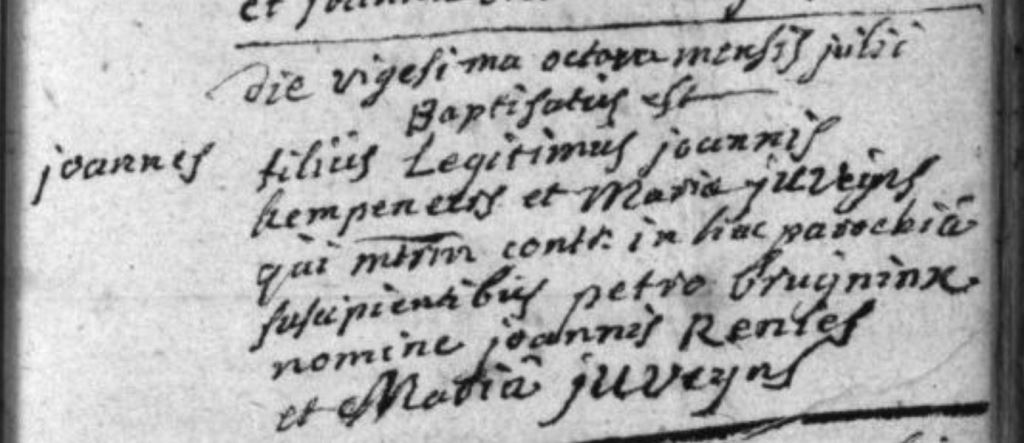 et
Die vigesima octava mensis julii
Baptisatus est
joannes filius Legitimus joannis
kempeners et Maria juveyns
qui mtrm contr: in hac parochiâ
suscipientibus petro bruyninx
nomine joannis Renses
et Mariâ juveyns